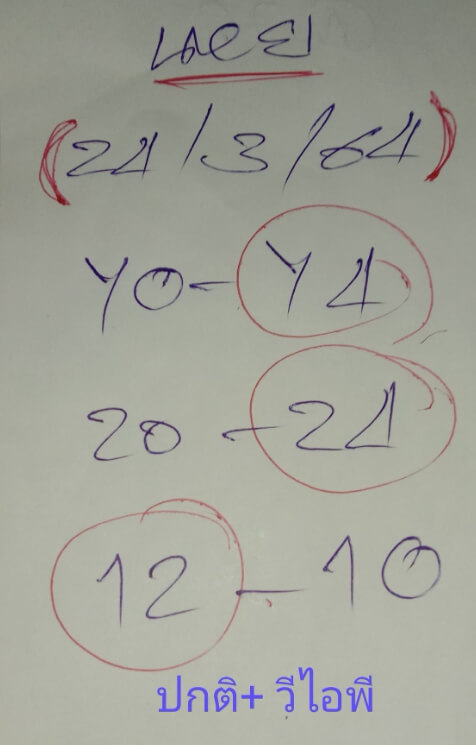 นอย
(24/3/64)
70-74
20-24
12-10
ปกติ+ วีไอพี